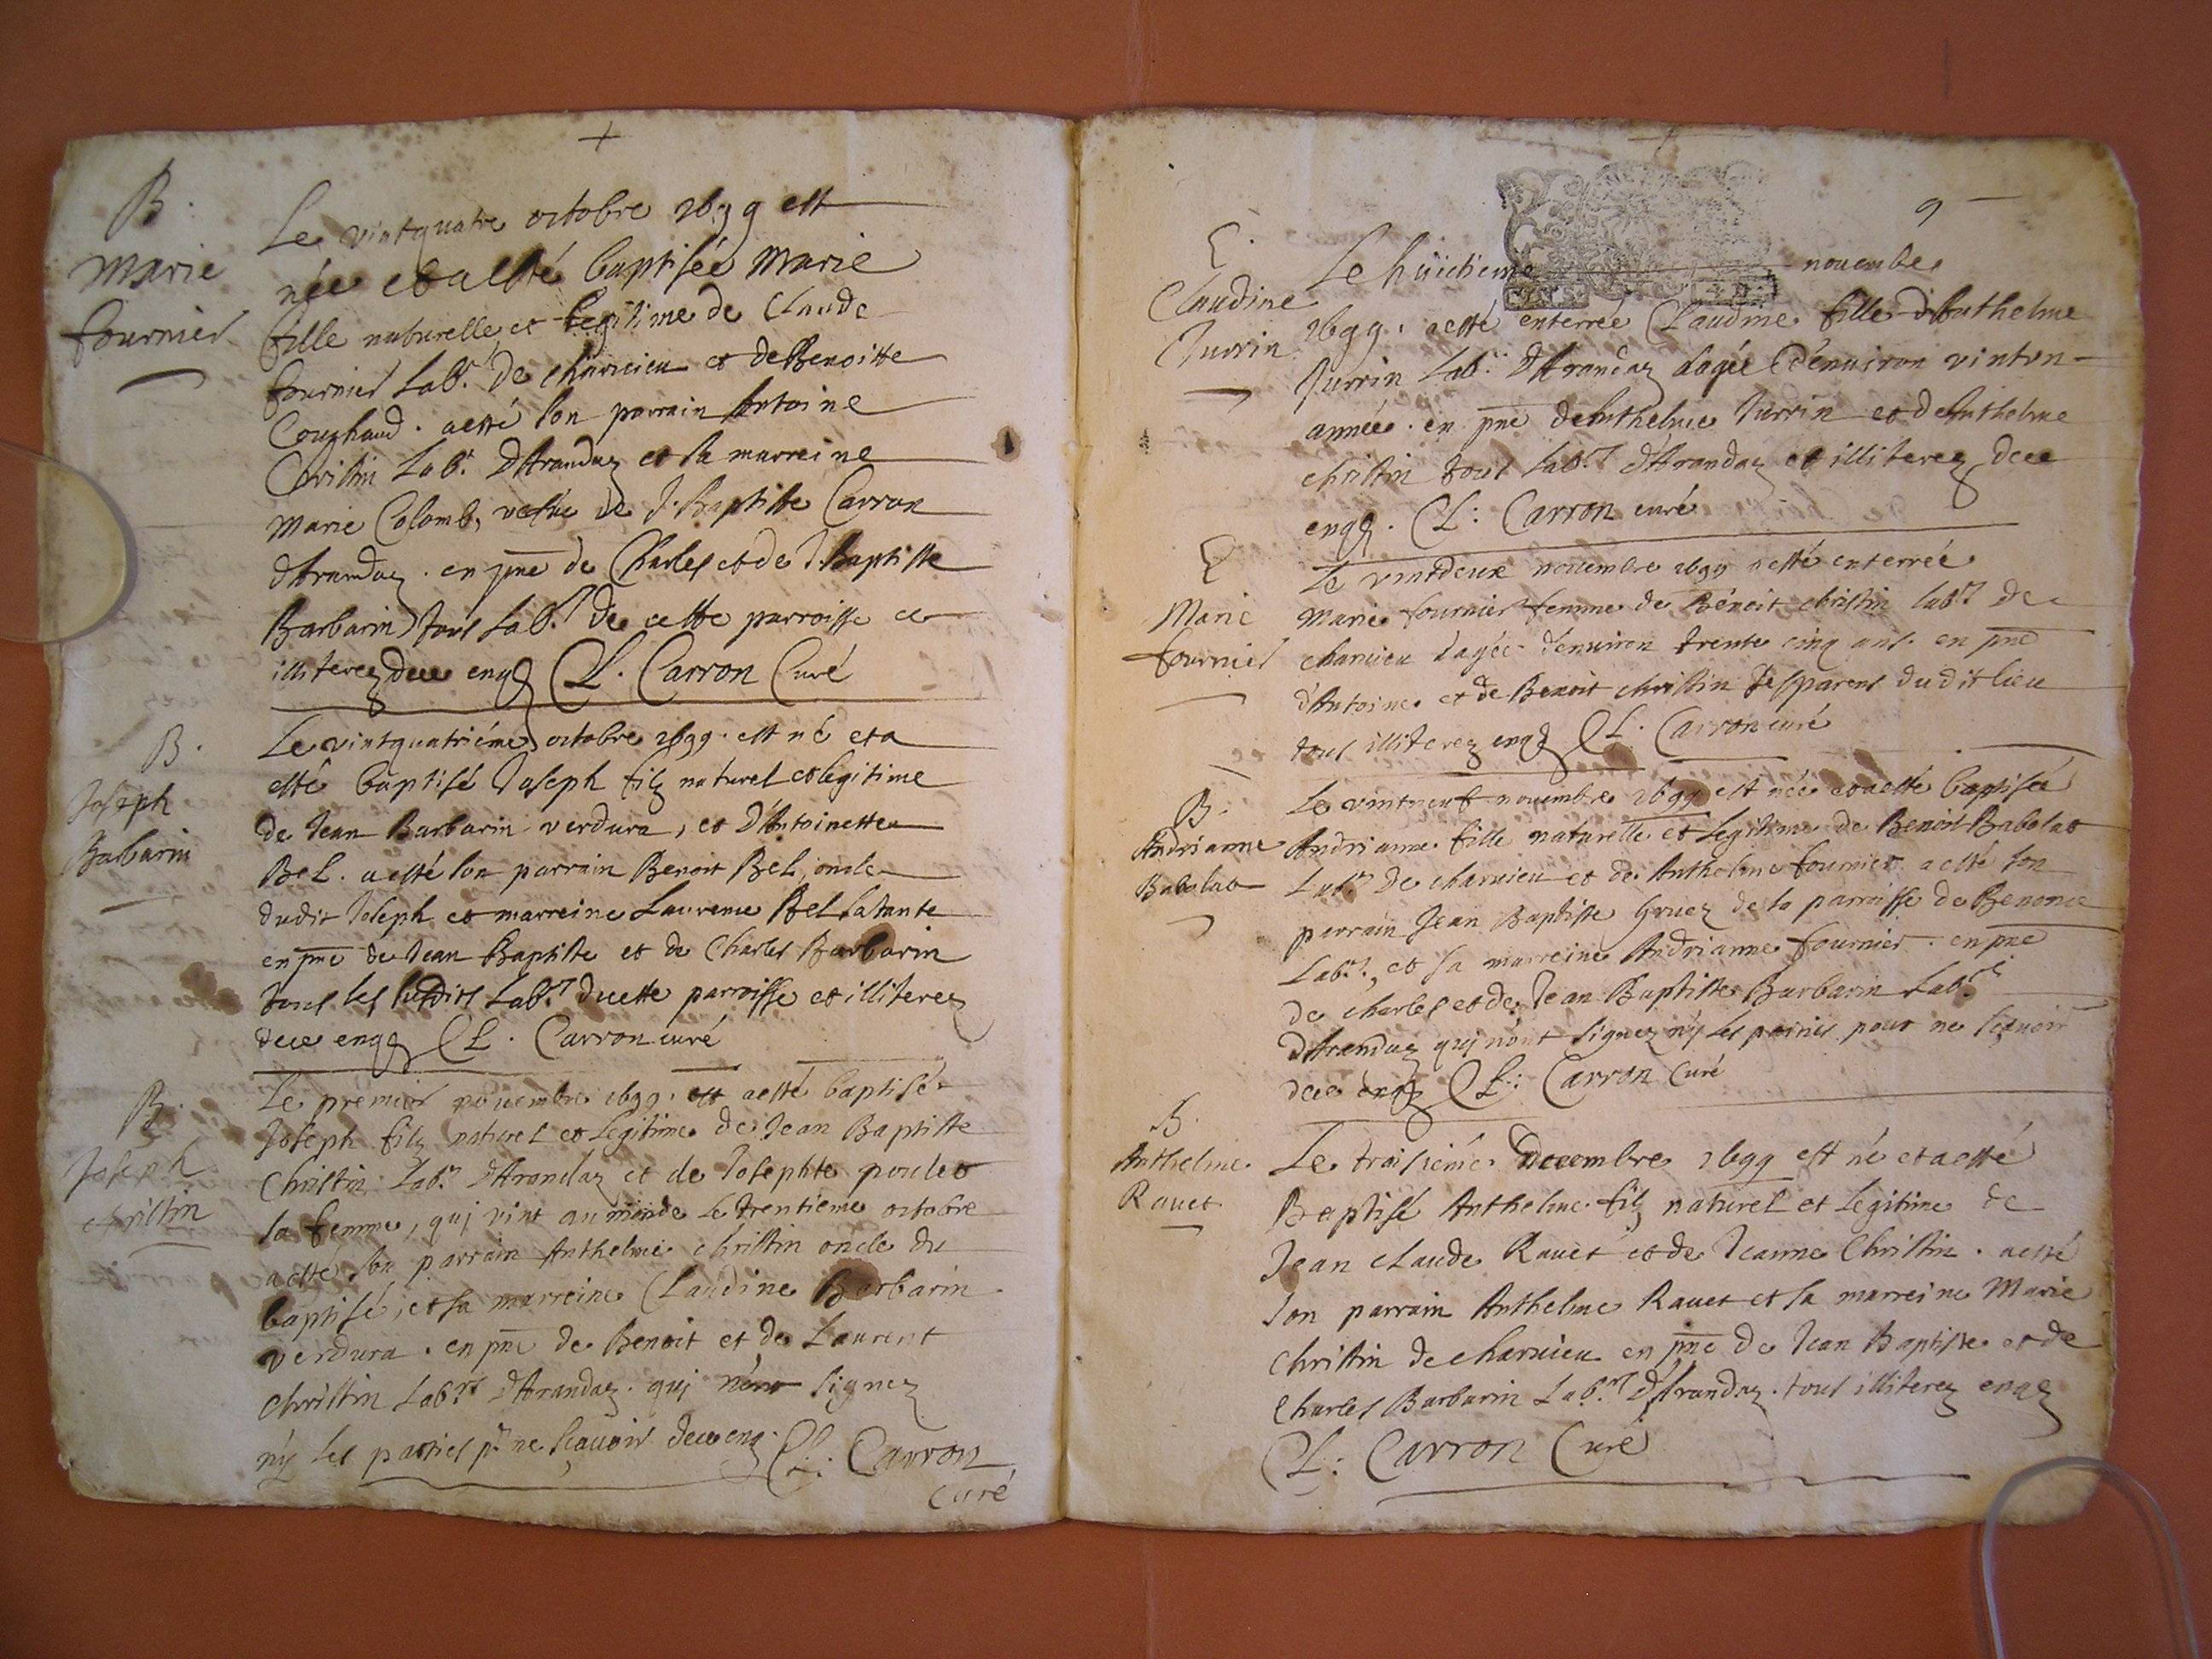 B.
Marie
fournier
Le vintquatre octobre 1699 est
née et a esté baptisée Marie
fille naturelle et legitime de Claude
fournier lab.r de charvieu et de Benoitte
Couchaud. a esté son parrain Antoine
Christin lab.r d'Arandaz et sa marreine
Marie Colomb, vefue de J. Baptiste Carron
d'Arandaz. en pnce de Charles et de J. Baptiste
Barbarin tous lab.rs de cette parroisse et
illiterez de ce enqs CL. Carron Curé
B.
Joseph
Barbarin
Le vintquatriéme octobre 1699. est né et a
esté baptisé Joseph filz naturel et legitime
de Jean Barbarin verdura, et d'Antoinette
Bel. a esté son parrain Benoit Bel, oncle
dudit Joseph et marreine Laurence Bel sa tante
en pnce de Jean Baptiste et de Charles Barbarin
tous les susdits lab.rs de cette parroisse et illiterez
de ce enqs CL. Carron curé
B.
Joseph
christin
Le premier novembre 1699. a esté baptisé
Joseph filz naturel et legitime de Jean Baptiste
Christin lab.r d'Arandaz et de Josephte poulet
sa femme, qui vint au monde le trentieme octobre
a esté son parrain Anthelme christin oncle du
baptisé, et sa marreine Claudine Barbarin
verdura. en pnce de Benoit et de Laurent
christin lab.rs d'Arandaz. qui n'ont signez
ny les parties pr ne sçavoir de ce enq. CL: Carron
curé
9
E.
Claudine
Jurrin
Le huictieme novembre
1699. a esté enterrée Claudine fille d'Anthelme
Jurrin lab.r d'Arandaz aagée d'enuiron vint un
année. en pnce de Anthelme Jurrin et de Anthelme
christin tous lab.rs d'Arandaz et illiterez de ce
enqs. CL: Carron curé
E
Marie
fournier
Le vintdeux novembre 1699 a esté enterrée
Marie fournier femme de Benoit christin lab.r de
charvieu aagée d'enuiron trente cinq ans. en pnce
d'Antoine et de Benoit christin ses parens du dit lieu
tous illiterez enqs CL. Carron curé
B.
Andrianne
Babolat
Le vintneuf novembre 1699 est née et a esté baptisée
Andrianne fille naturelle et legitime de Benoit Babolat
Lab.r de charvieu et de Anthelme fournier a esté son
parrain Jean Baptiste Gruez de la parroisse de Benonce
Lab.r, et sa marreine Andrianne fournier. en pnce
de charles et de Jean Baptiste Barbarin Lab.rs
d'Arandaz qui n'ont signez ny les parties pour ne sçavoir
de ce enqs CL: Carron Curé
B.
Anthelme
Rauet
Le troisiéme decembre 1699 est né et a esté
Baptisé Anthelme filz naturel et legitime de
Jean claude Rauet et de Jeanne Christin. a esté
son parrain Anthelme Rauet et sa marreine Marie
christin de charvieu en pnce de Jean Baptiste et de
charles Barbarin Lab.rs d'Arandaz. tous illiterez enqs
CL: Carron Curé